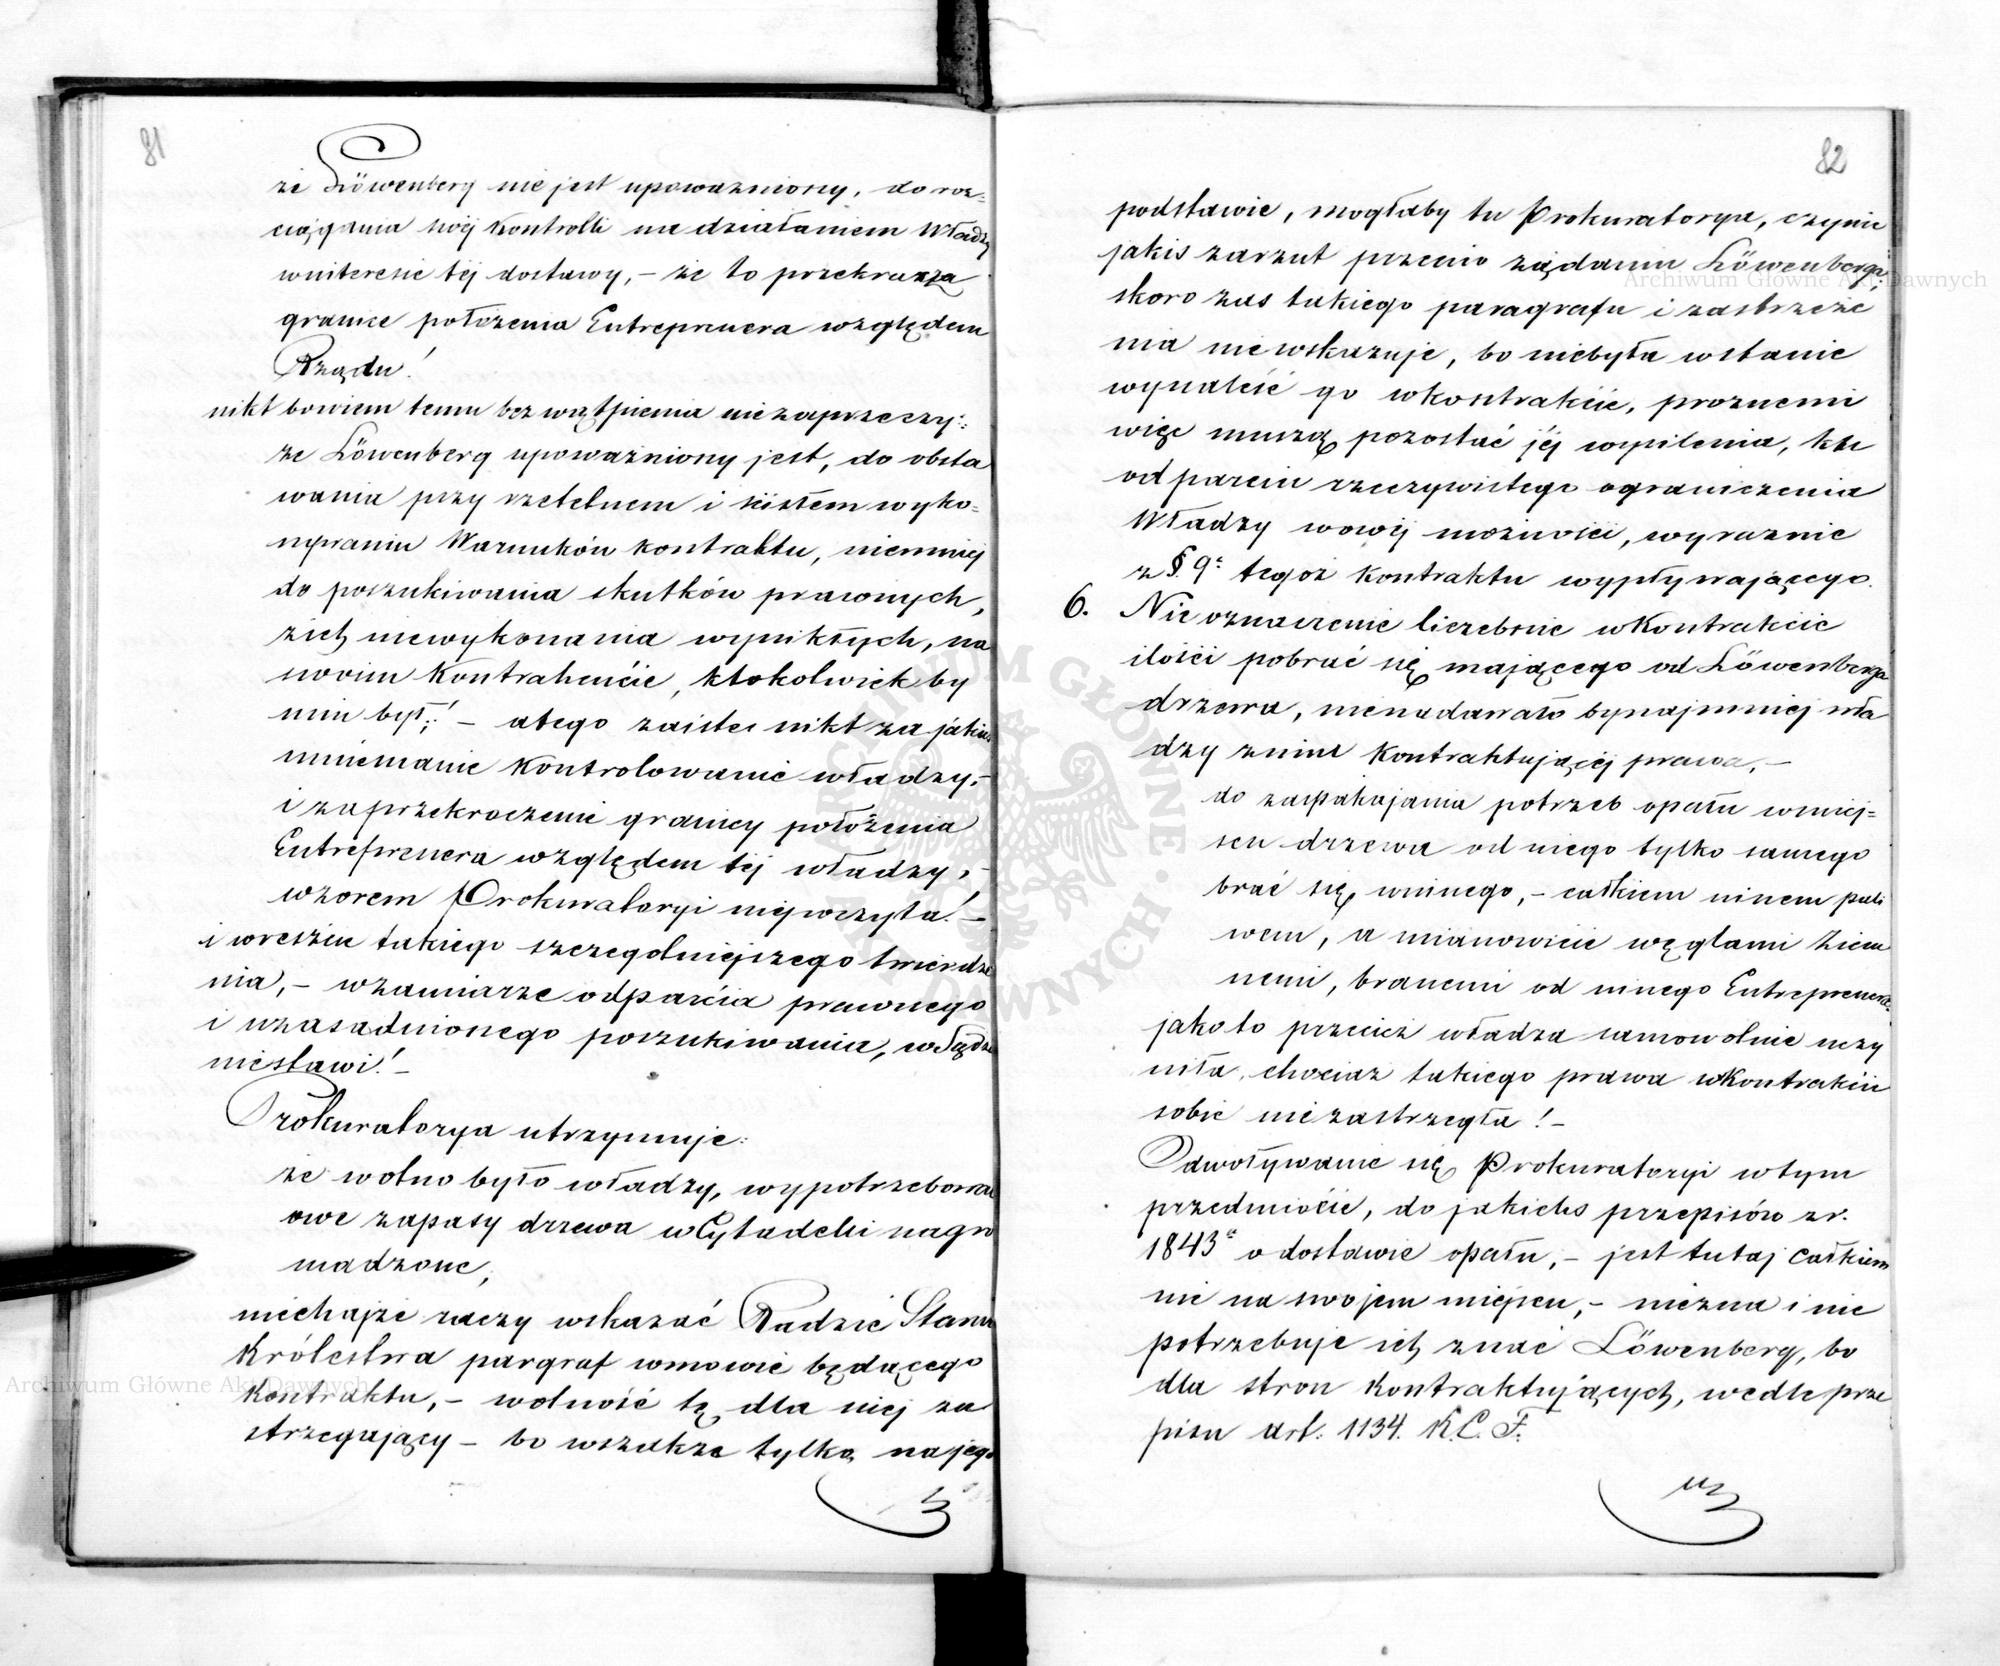 81
że Löwenberg nie jest upoważniony, do roz=
ciągania swéj Kontrolli na działaniem Władzy
w interesie téj dostawy, – że to przekracza
granice położenia Entreprenera względem
Rządu!
nikt bowiem temu bez wątpienia niezaprzeczy:
że Löwenberg upoważniony jest, do obsta
wania przy rzetelnem i ścisłem wyko=
nywaniu Warunków Kontraktu, niemniéj
do poszukiwania skutków prawnych,
z ich niewykonania wynikłych, na
swoim Kontrahencie, ktokolwiek by
nim był; – a tego zaiste nikt za jakieś
mniemanie Kontrolowanie władzy, –
i za przekroczenie granicy położenia
Entreprenera względem téj władzy, –
wzorem Prokuratoryi niepoczyta! –
i wreszcie takiego szczegolniejszego twierdze
nia, – w zamiarze odparcia prawnego
i uzasadnionego poszukiwania, w Sądzie
niestawi! –
Prokuratorya utrzymuje:
że wolno było władzy, wypotrzebować
owe zapasy drzewa w Cytadelli nagro
madzone,
niechajże raczy wskazać Radzie Stanu
Królestwa pargraf w mowie będącego
Kontraktu, – wolność tę dla niej za
strzegający – bo wszakże tylko na jego
82
podstawie, mogłaby tu Prokuratorya, czynić
jakiś zarzut przeciw żądaniu Löwenberga,
skoro zaś takiego paragrafu i zastrzeże
nia nie wskazuje, bo niebyła w stanie
wynaleść go w Kontrakcie, prożnemi
więc muszą pozostać jéj wysilenia, ku
odparciu rzeczywistego ograniczenia
Władzy w owéj możności, wyraźnie
z §. 9° tegoż Kontraktu wypływającego.
6. Nie oznaczenie liczebnie w Kontrakcie
ilości pobrać się mającego od Löwenberga
drzewa, nienadawało bynajmniéj wła
dzy z nim Kontraktującéj prawa, –
do zaspakajania potrzeb opału w miej=
scu drzewa od niego tylko samego
brać się winnego, – całkiem innem pali
wem, a mianowicie węglami Ziem
nemi, branemi od innego Entreprenera
jako to przecież władza samowolnie uczy
niła, chociaż takiego prawa w Kontrakcie
sobie niezastrzegła! –
Odwoływanie się Prokuratoryi w tym
przedmiocie, do jakichś przepisów z r.
1843° o dostawie opału, – jest tutaj całkiem
nie na swojem miejscu, – niezna i nie
potrzebuje ich znać Löwenberg, bo
dla stron Kontraktujących, wedle prze
pisu art: 1134. K. C. F.
Archiwum Główne Akt Dawnych
Archiwum Główne Akt Dawnych
ARCHIWUM GŁÓWNE AKT DAWNYCH